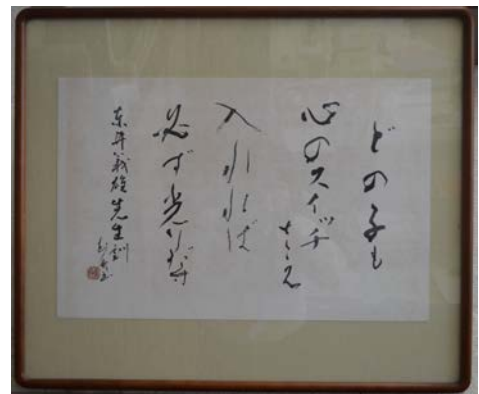 どの子も
心のスイッチ
さえ
入れれば
必ず光りだす
東井義雄先生訓